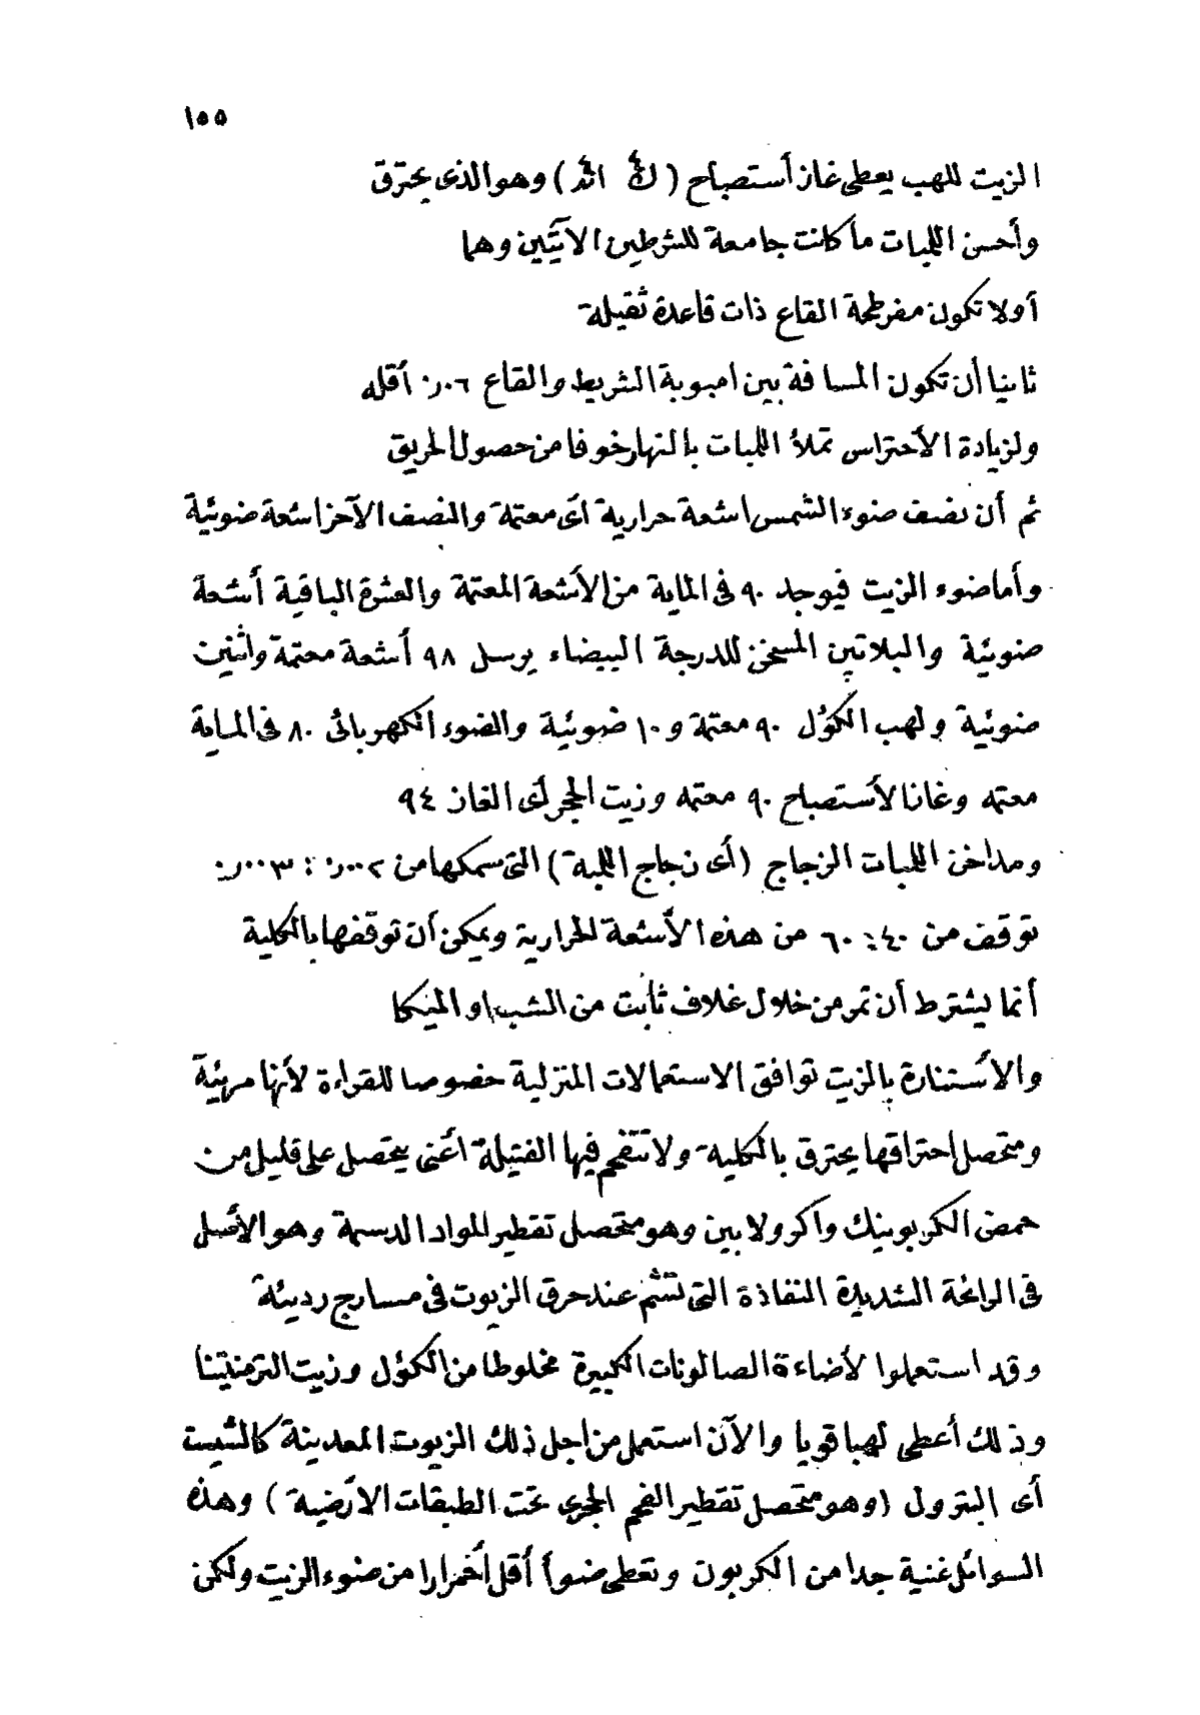 ١٥٥
الزيت للهب يعطى غاز أستصباح ( ) وهو الذى يحترق
وأحسن اللبات ما كانت جامعة للشرطين الآتيين وهما
أولا تكون مفرطحة القاع ذات قاعدة ثقيلة
ثانيا أن تكون المسافة بين امبوبة الشريط والقاع ٠٦ر٠ أقله
ولزيادة الأحتراس تملأ اللبات بالنهار خوفا من حصول الحريق
ثم أن نصف ضوء الشمس اشعة حرارية اى معتمة والنصف الآخر اشعة ضوئية
وأما ضوء الزيت فيوجد ٩٠ فى الماية من الأشعة المعتمة والعشرة الباقية أشعة
ضوئية والبلاتين المسخن للدرجة البيضاء يرسل ٩٨ أشعة معتمة واثنين
ضوئية ولهب الكؤل ٩٠ معتمة و١٠ ضوئية والضوء الكهربائى ٨٠ فى الماية
معتمه وغاز الأستصباح ٩٠ معتمه وزيت الحجر أى الغاز ٩٤
ومداخن اللبات الزجاج (أى زجاج اللبة) التى سمكها من ٠٠٢ر٠ : ٠٠٣ر٠
توقف من ٤٠ : ٦٠ من هذه الأشعة الحرارية ويمكن أن توقفها بالكلية
أنما يشترط أن تمر من خلال غلاف ثابت من الشب او الميكا
والأستنارة بالزيت توافق الاستعمالات المنزلية خصوصا للقراءة لأنها مرئية
ومتحصل احتراقها يحترق بالكلية ولا تتفحم فيها الفتيلة أعنى يتحصل على قليل من
حمض الكربونيك واكرولايين وهو متحصل تقطير المواد الدسمة وهو الأصل
فى الرائحة الشديدة النفاذة التى تشم عند حرق الزيوت فى مسارج رديئة
وقد استعملوا لأضاءة الصالونات الكبيرة مخلوطا من الكؤل وزيت الترمنتينا
وذلك أعطى لهبا قويا والآن استعمل من اجل ذلك الزيوت المعدنية كالشيست
أى البترول (وهو متحصل تقطير الفحم الحجرى تحت الطبقات الأرضية) وهذه
السوائل غنية جدا من الكربون وتعطى ضوأ أقل أخمرارا من ضوء الزيت ولكن